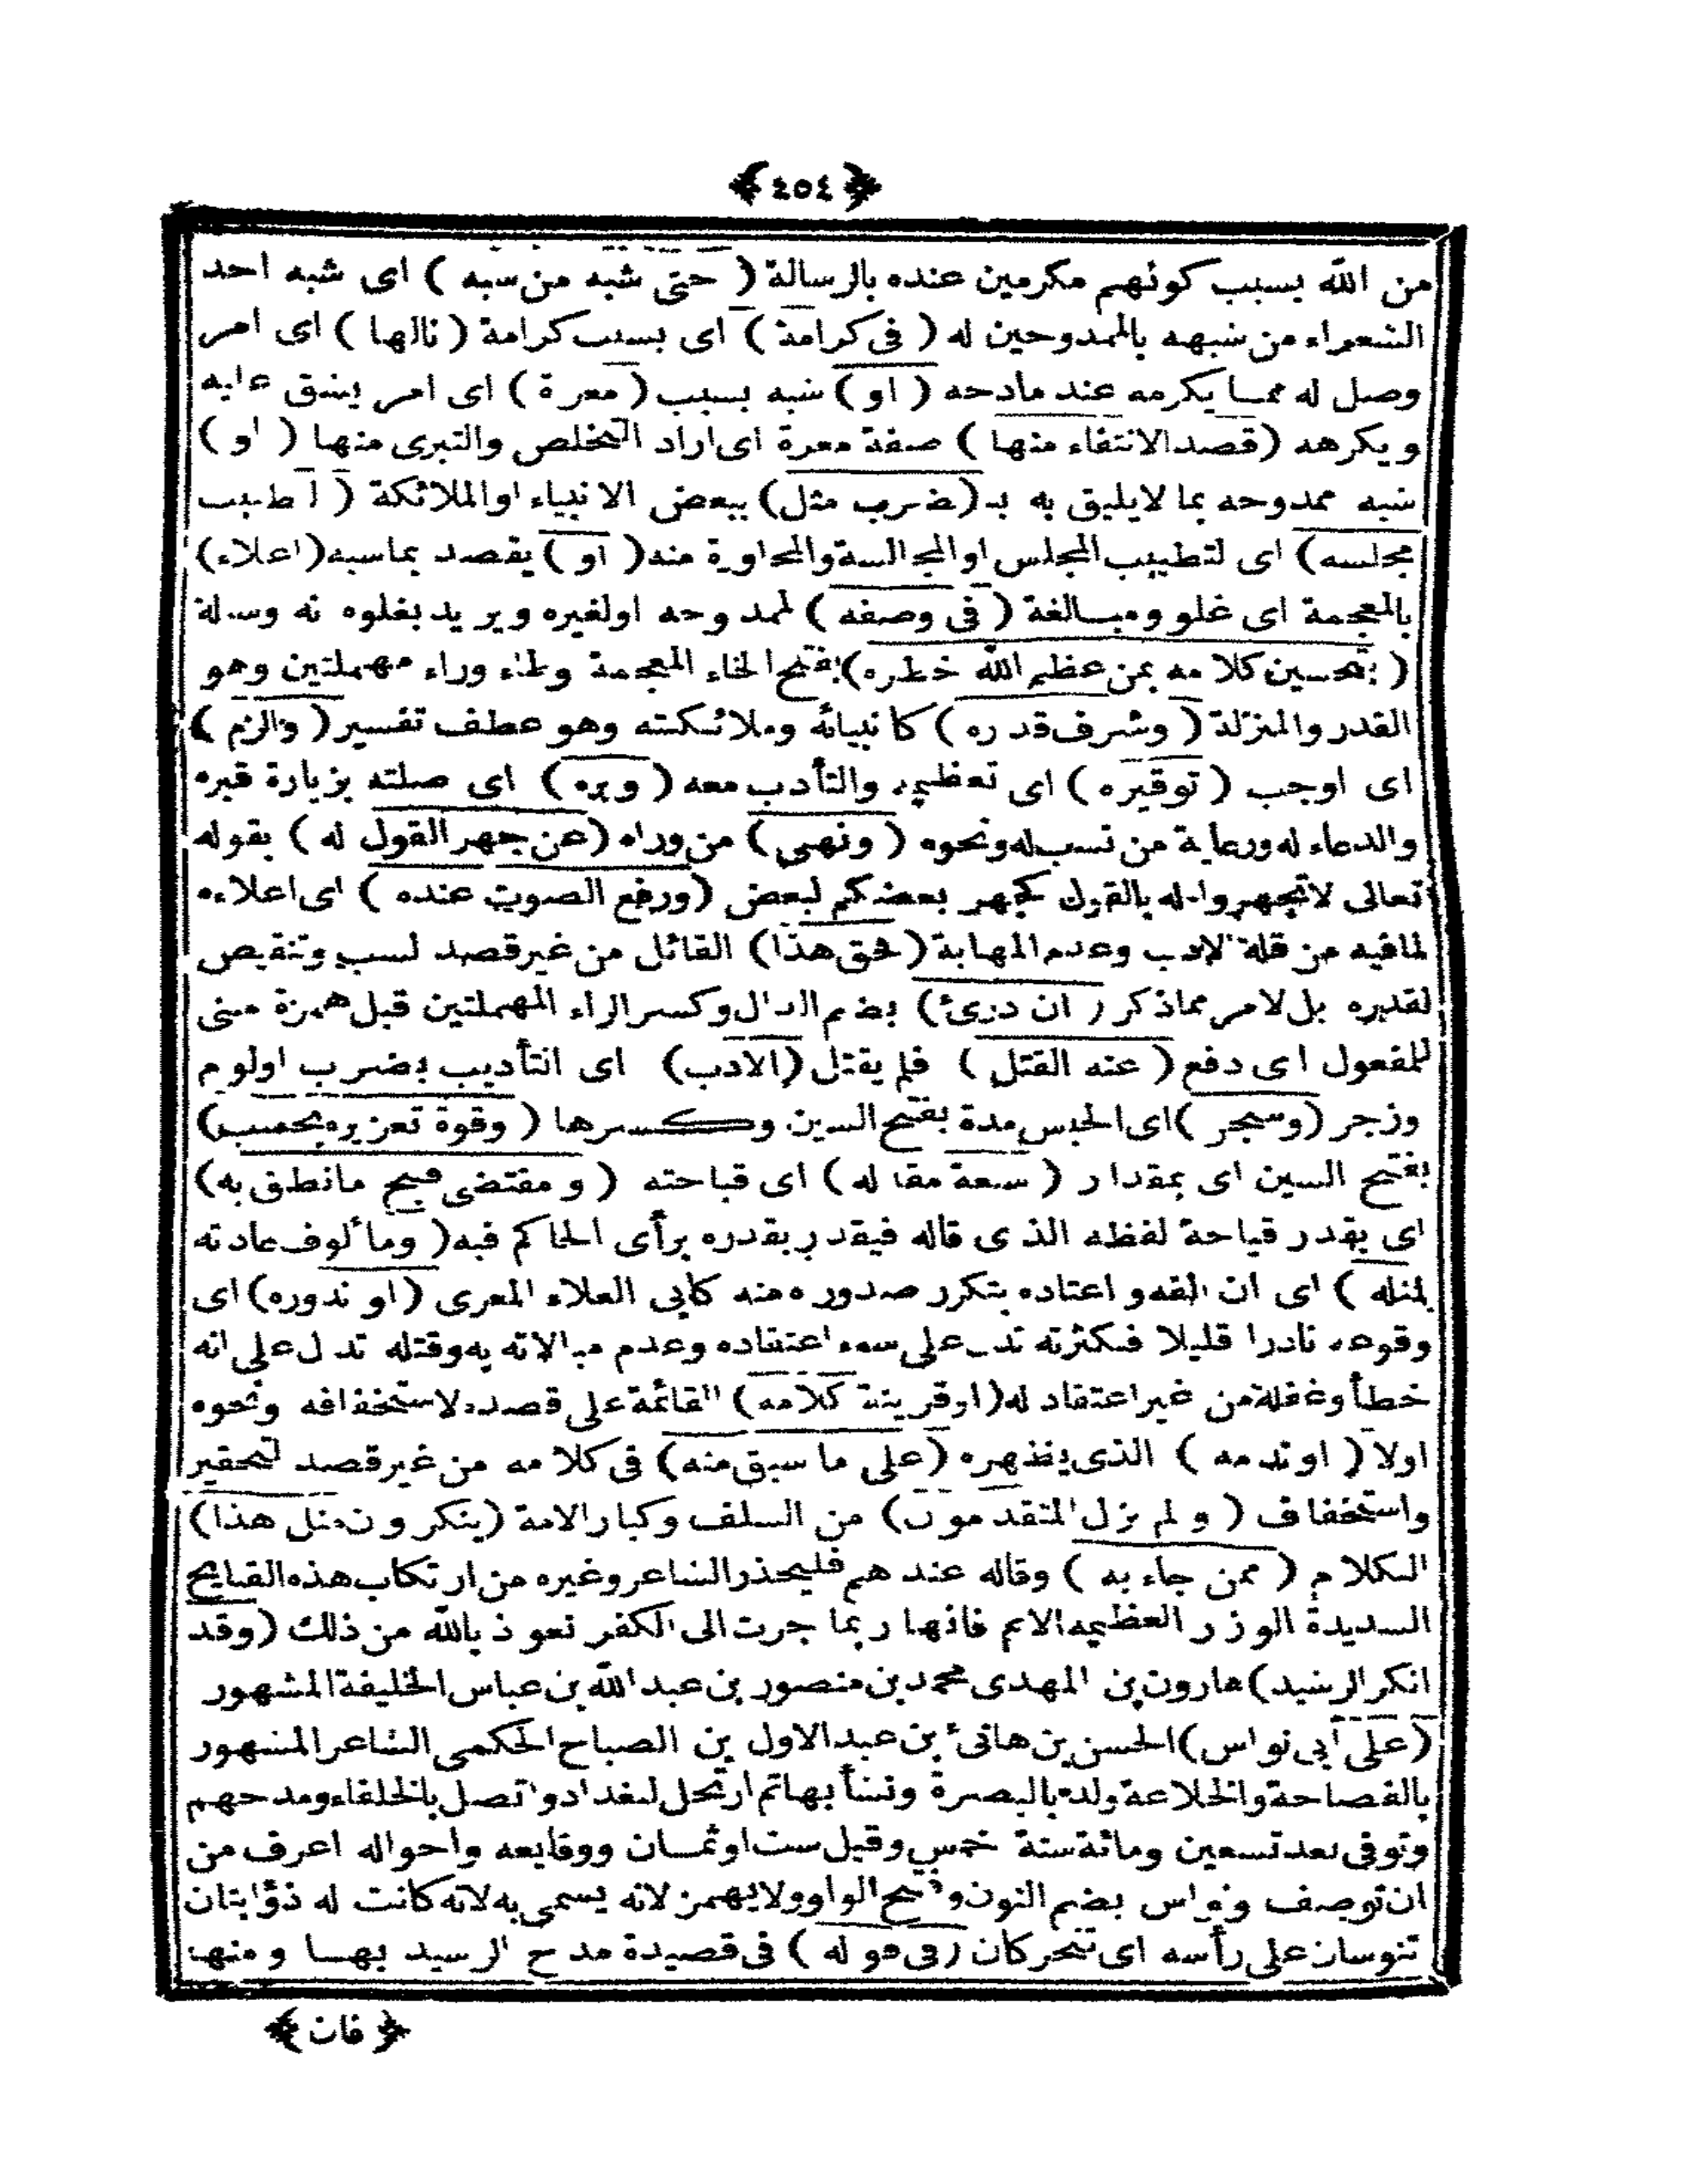 ﴿٤٥٤﴾
من الله بسبب كونهم مكرمين عنده بالرسالة ( حتى شبه من شبه ) اى شبه احد
الشعراء من شبهه بالممدوحين له ( فى كرامة ) اى بسبب كرامة ( نالها ) اى امر
وصل له مما يكرمه عند مادحه ( او ) شبه بسبب ( معرة ) اى امر يشق عليه
ويكرهه (قصد الانتفاء منها ) صفة معرة اى اراد التخلص والتبرى منها ( او )
شبه ممدوحه بما لايليق به بـ (ضرب مثل) ببعض الانبياء او الملائكة ( اطيب
مجلسه) اى لتطييب المجلس او المجالسة والمحاورة منه ( او ) يقصد بماشبه (اغلاء)
بالمعجمة اى غلو ومبالغة ( فى وصفه ) لممدوحه اولغيره ويريد بغلوه
( بتحسين كلامه بمن عظم الله خطره) بفتح الخاء المعجمة وطاء وراء مهملتين وهو
القدر والمنزلة ( وشرف قدره ) كانبيائه وملائكته وهو عطف تفسير ( والزم )
اى اوجب ( توقيره ) اى تعظيمه والتأدب معه ( وبره ) اى صلته بزيارة قبره
والدعاء له ورعاية من نسب له ونحوه ( ونهى ) من وراه (عن جهر القول له ) بقوله
تعالى لاتجهروا له بالقول كجهر بعضكم لبعض (ورفع الصوت عنده ) اى اعلاءه
لمافيه من قلة الادب وعدم المهابة (فحق هذا) القائل من غير قصد لسب وتنقيص
لقدره بل لامر مماذكر ( ان درئ) بضم الدال وكسر الراء المهملتين قبل همزة مبنى
للمفعول اى دفع ( عنه القتل ) فلم يقتل (الادب) اى التأديب بضرب اولوم
وزجر (وسجن ) اى الحبس مدة بفتح السين وكسرها ( وقوة تعزيره بحسب)
بفتح السين اى بمقدار ( شنعة مقاله ) اى قباحته ( ومقتضى قبيح مانطق به)
اى بقدر قباحة لفظه الذى قاله فيقدر بقدره برأى الحاكم فيه ( ومألوف عادته
لمثله ) اى ان الفه واعتاده بتكرر صدوره منه كابى العلاء المعرى (او ندوره) اى
وقوعه نادرا قليلا فكثرته تدل على سوء اعتقاده وعدم مبالاته به وقتله تدل على انه
خطأ وغفلة من غير اعتقاد له (او قرينة كلامه) القائمة على قصده لاستخفافه ونحوه
اولا ( او ندمه ) الذى يظهره (على ما سبق منه) فى كلامه من غير قصد لتحقير
واستخفاف ( ولم يزل المتقدمون) من السلف وكبار الامة (ينكرون مثل هذا)
الكلام ( ممن جاء به ) وقاله عندهم فليحذر الشاعر وغيره من ارتكاب هذه القبايح
الشديدة الوزر العظيمة الاثم فانها ربما جرت الى الكفر نعوذ بالله من ذلك (وقد
انكر الرشيد) هارون بن المهدى محمد بن منصور بن عبد الله بن عباس الخليفة المشهور
(على ابى نواس) الحسن بن هانئ بن عبد الاول بن الصباح الحكمى الشاعر المشهور
بالفصاحة والخلاعة ولد بالبصرة ونشأ بها ثم ارتحل لبغداد واتصل بالخلفاء ومدحهم
وتوفى بعد تسعين ومائة سنة خمس وقيل ست او ثمان ووقايعه واحواله اعرف من
ان توصف ونواس بضم النون وفتح الواو ولا يهمز لانه يسمى به لانه كانت له ذؤابتان
تنوسان على رأسه اى تتحركان (فى قوله ) فى قصيدة مدح الرشيد بها ومنها
﴿ فان ﴾